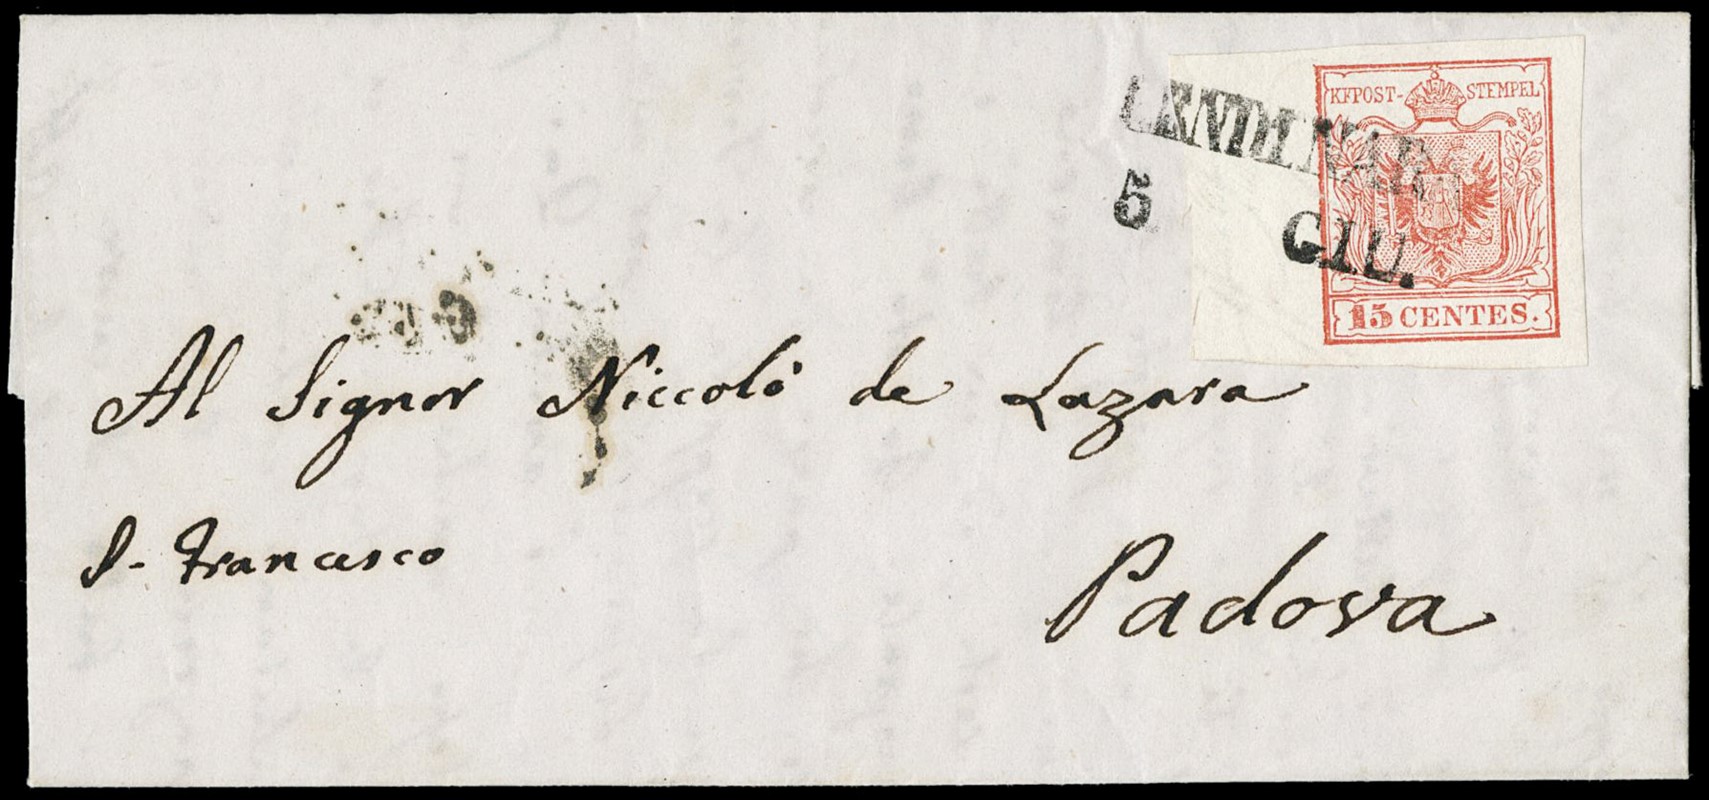 KKPOST-STEMPEL
LENDINARA
5 GIU.
15 CENTES.
Al Signor Niccolò de Lazara
S. Francesco
Padova